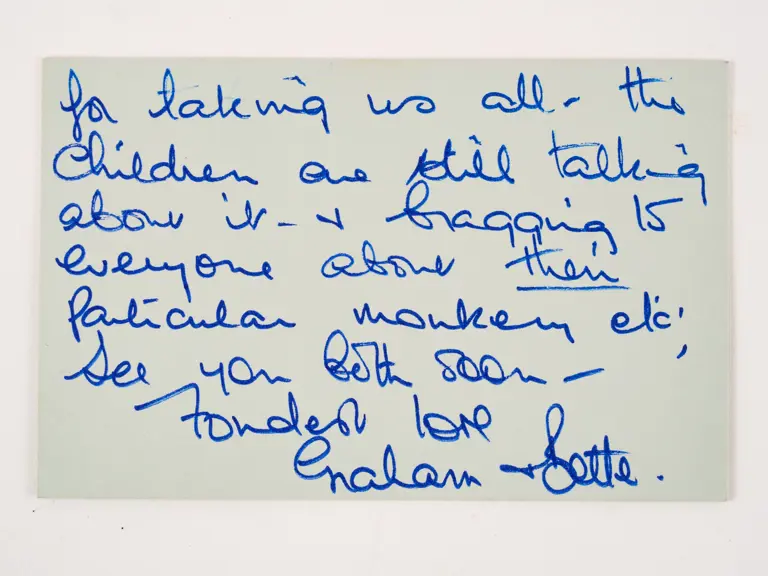 for taking us all - the
Children are still talking
about it - + bragging to
everyone about their
particular monkey etc;
See you both soon -
Fondest love
Graham + Bette.